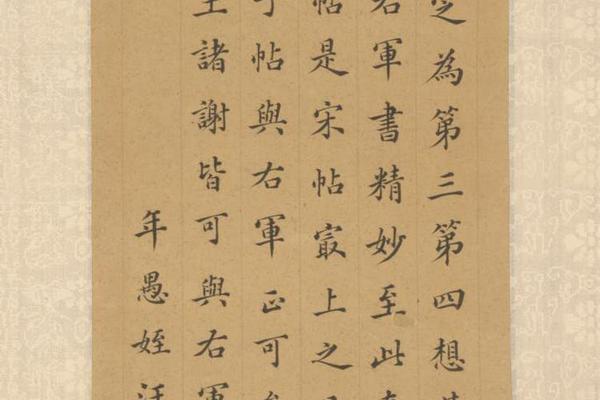 為第三第四想
右軍書精妙至此
帖是宋帖㝡上之
帖與右軍正可
王諸謝皆可與右軍
年愚姪汪